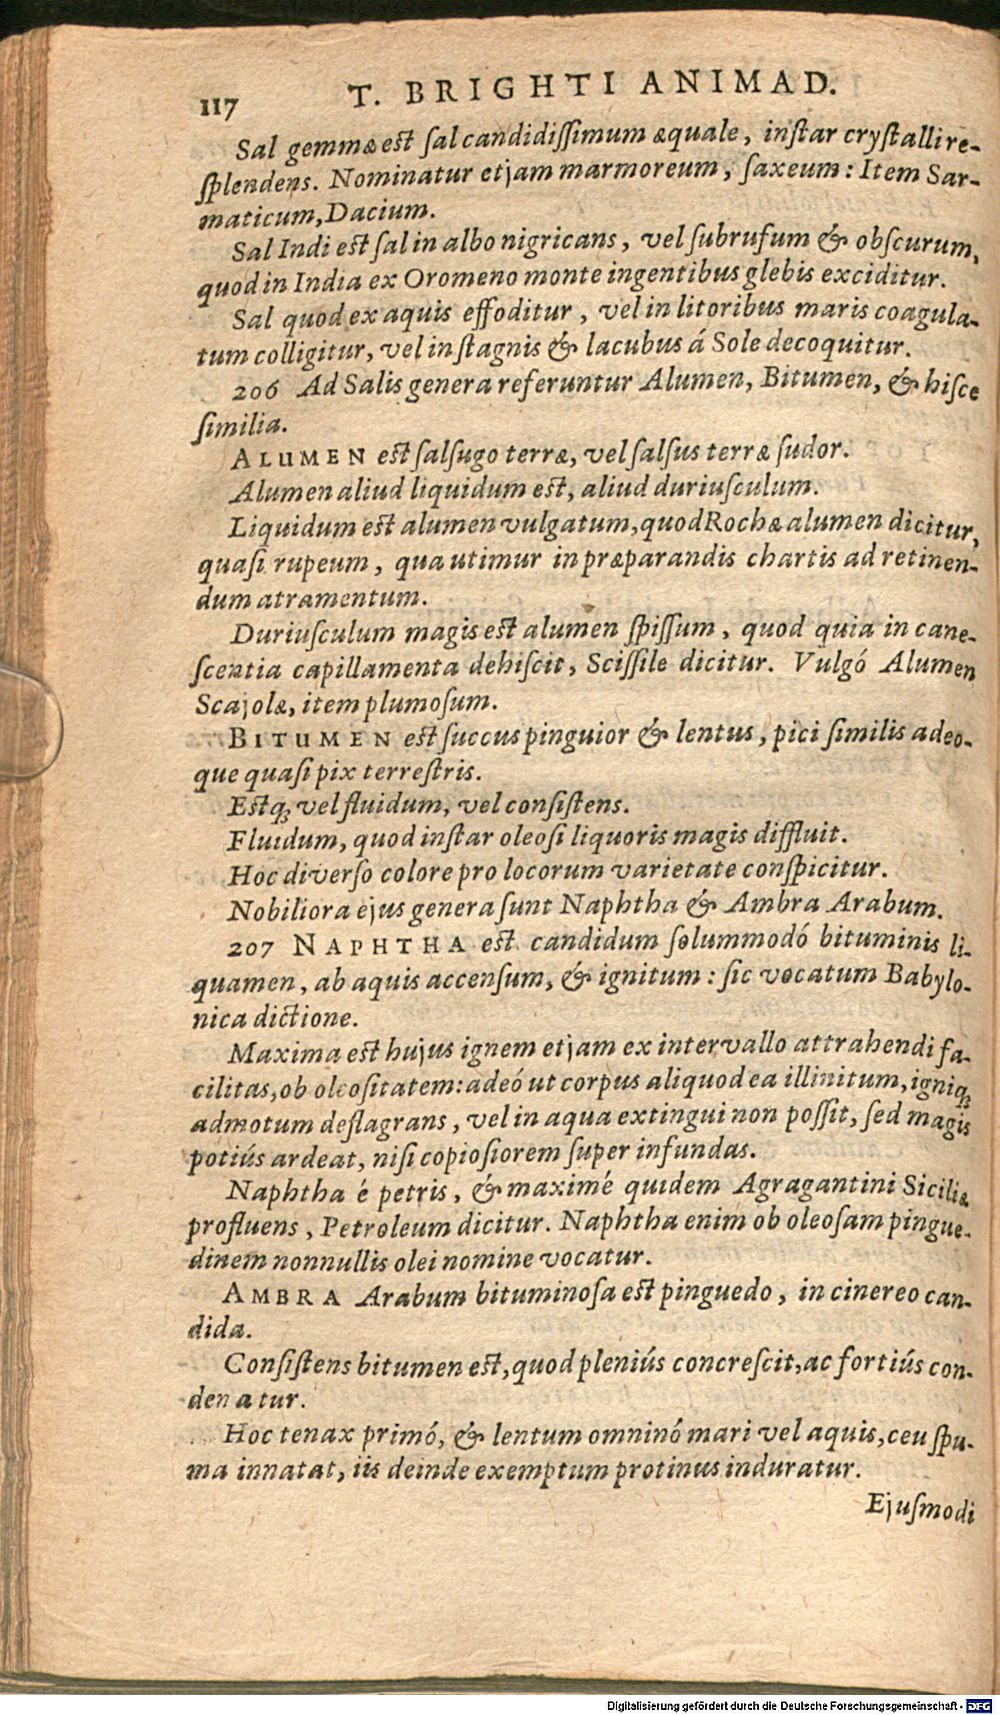 117 T. BRIGHTI ANIMAD.
Sal gemmæ est ſal candidiſſimum æquale, inſtar cryſtalli re-
ſplendens. Nominatur etjam marmoreum, ſaxeum: Item Sar-
maticum, Dacium.
Sal Indi est ſal in albo nigricans, vel ſubrufum & obſcurum,
quod in India ex Oromeno monte ingentibus glebis exciditur.
Sal quod ex aquis effoditur, vel in litoribus maris coagula-
tum colligitur, vel in ſtagnis & lacubus á Sole decoquitur.
206 Ad Salis genera referuntur Alumen, Bitumen, & hiſce
ſimilia.
ALUMEN est ſalſugo terræ, vel ſalſus terræ ſudor.
Alumen aliud liquidum est, aliud duriuſculum.
Liquidum est alumen vulgatum, quod Rochæ alumen dicitur,
quaſi rupeum, qua utimur in præparandis chartis ad retinen-
dum atramentum.
Duriuſculum magis est alumen ſpiſſum, quod quia in cane-
ſcentia capillamenta dehiſcit, Sciſſile dicitur. Vulgó Alumen
Scajolæ, item plumoſum.
BITUMEN est ſuccus pinguior & lentus, pici ſimilis adeo-
que quaſi pix terreſtris.
Estqꝫ vel fluidum, vel conſiſtens.
Fluidum, quod inſtar oleoſi liquoris magis diffluit.
Hoc diverſo colore pro locorum varietate conſpicitur.
Nobiliora ejus genera ſunt Naphtha & Ambra Arabum.
207 NAPHTHA est candidum ſolummodó bituminis li-
quamen, ab aquis accenſum, & ignitum: ſic vocatum Babylo-
nica dictione.
Maxima est hujus ignem etjam ex intervallo attrahendi fa-
cilitas, ob oleoſitatem: adeó ut corpus aliquod ea illinitum, igniqꝫ
admotum deflagrans, vel in aqua extingui non poſſit, ſed magis
potiús ardeat, niſi copioſiorem ſuper infundas.
Naphtha é petris, & maximé quidem Agragantini Siciliæ
profluens, Petroleum dicitur. Naphtha enim ob oleoſam pingue-
dinem nonnullis olei nomine vocatur.
AMBRA Arabum bituminoſa est pinguedo, in cinereo can-
dida.
Conſiſtens bitumen est, quod pleniús concreſcit, ac fortiús con-
den a tur.
Hoc tenax primó, & lentum omninó mari vel aquis, ceu ſpu-
ma innatat, iis deinde exemptum protinus induratur.
Ejuſmodi
Digitalisierung gefördert durch die Deutsche Forschungsgemeinschaft - DFG